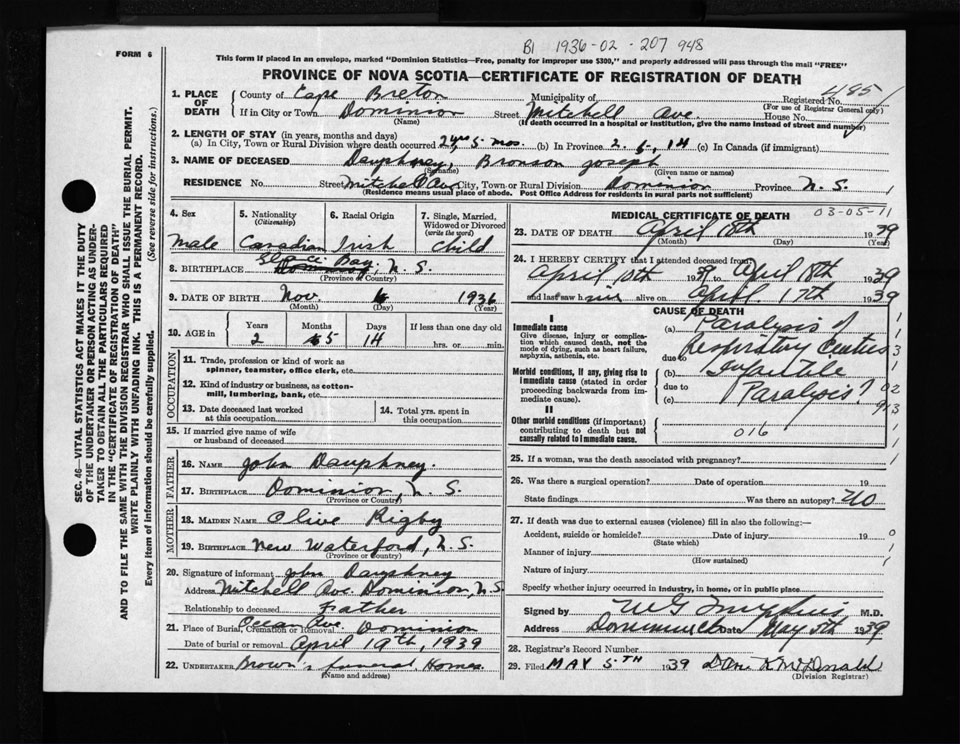 B1 1936-02-207948
FORM 6
This form if placed in an envelope, marked "Dominion Statistics—Free, penalty for improper use $300," and properly addressed will pass through the mail "FREE"
PROVINCE OF NOVA SCOTIA—CERTIFICATE OF REGISTRATION OF DEATH
SEC. 46—VITAL STATISTICS ACT MAKES IT THE DUTY
OF THE UNDERTAKER OR PERSON ACTING AS UNDER-
TAKER TO OBTAIN ALL THE PARTICULARS REQUIRED
IN THE "CERTIFICATE OF REGISTRATION OF DEATH"
AND TO FILE THE SAME WITH THE DIVISION REGISTRAR WHO SHALL ISSUE THE BURIAL PERMIT.
WRITE PLAINLY WITH UNFADING INK. THIS IS A PERMANENT RECORD.
Every item of information should be carefully supplied. (See reverse side for instructions.)
1. PLACE OF DEATH
County of Cape Breton Municipality of Registered No. 4185
(For use of Registrar General only)
If in City or Town Dominion Street Mitchell Ave. House No.
(Name) (If death occurred in a hospital or institution, give the name instead of street and number)
2. LENGTH OF STAY (in years, months and days)
(a) In City, Town or Rural Division where death occurred 2 yrs 5 mos. (b) In Province 2, 5, 14 (c) In Canada (if immigrant)
3. NAME OF DECEASED Dauphney, Bronson Joseph
(Surname) (Given name or names)
RESIDENCE No. Street Mitchell Ave City, Town or Rural Division Dominion Province N. S.
(Residence means usual place of abode. Post Office Address for residents in rural parts not sufficient)
4. Sex Male
5. Nationality (Citizenship) Canadian
6. Racial Origin Irish
7. Single, Married, Widowed or Divorced (write the word) Child
8. BIRTHPLACE Glace Bay, N. S.
(Province or Country)
9. DATE OF BIRTH Nov. 1936
(Month) (Day) (Year)
10. AGE in Years 2 Months 5 Days 14 If less than one day old hrs. or min.
OCCUPATION
11. Trade, profession or kind of work as
spinner, teamster, office clerk, etc.
12. Kind of industry or business, as cotton-
mill, lumbering, bank, etc.
13. Date deceased last worked
at this occupation
14. Total yrs. spent in
this occupation
15. If married give name of wife
or husband of deceased
FATHER
16. NAME John Dauphney.
17. BIRTHPLACE Dominion, N. S.
(Province or Country)
MOTHER
18. MAIDEN NAME Olive Rigby
19. BIRTHPLACE New Waterford, N. S.
(Province or Country)
20. Signature of informant John Dauphney
Address Mitchell Ave. Dominion, N.S.
Relationship to deceased Father
21. Place of Burial, Cremation or Removal Ocean Ave. Dominion
Date of burial or removal April 19th, 1939
22. UNDERTAKER Brown's Funeral Homes
(Name and address)
MEDICAL CERTIFICATE OF DEATH 03-05-11
23. DATE OF DEATH April 18th 1939
(Month) (Day) (Year)
24. I HEREBY CERTIFY that I attended deceased from:
April 10th 1939 to April 18th 1939
and last saw him alive on April 17th 1939
CAUSE OF DEATH
I
Immediate cause
Give disease, injury or complica-
tion which caused death, not the
mode of dying, such as heart failure,
asphyxia, asthenia, etc.
(a) Paralysis of
due to Respiratory Centres
Morbid conditions, if any, giving rise to
immediate cause (stated in order
proceeding backwards from im-
mediate cause).
(b) Infantile
due to
(c) Paralysis?
II
Other morbid conditions (if important)
contributing to death but not
causally related to immediate cause.
016
25. If a woman, was the death associated with pregnancy?
26. Was there a surgical operation? Date of operation 19
State findings Was there an autopsy? No
27. If death was due to external causes (violence) fill in also the following:—
Accident, suicide or homicide? Date of injury 19
(State which)
Manner of injury
(How sustained)
Nature of injury
Specify whether injury occurred in industry, in home, or in public place
Signed by M.D.
Address Date May 5th 1939
28. Registrar's Record Number
29. Filed MAY 5TH 1939 Dan K McDonald
(Division Registrar)